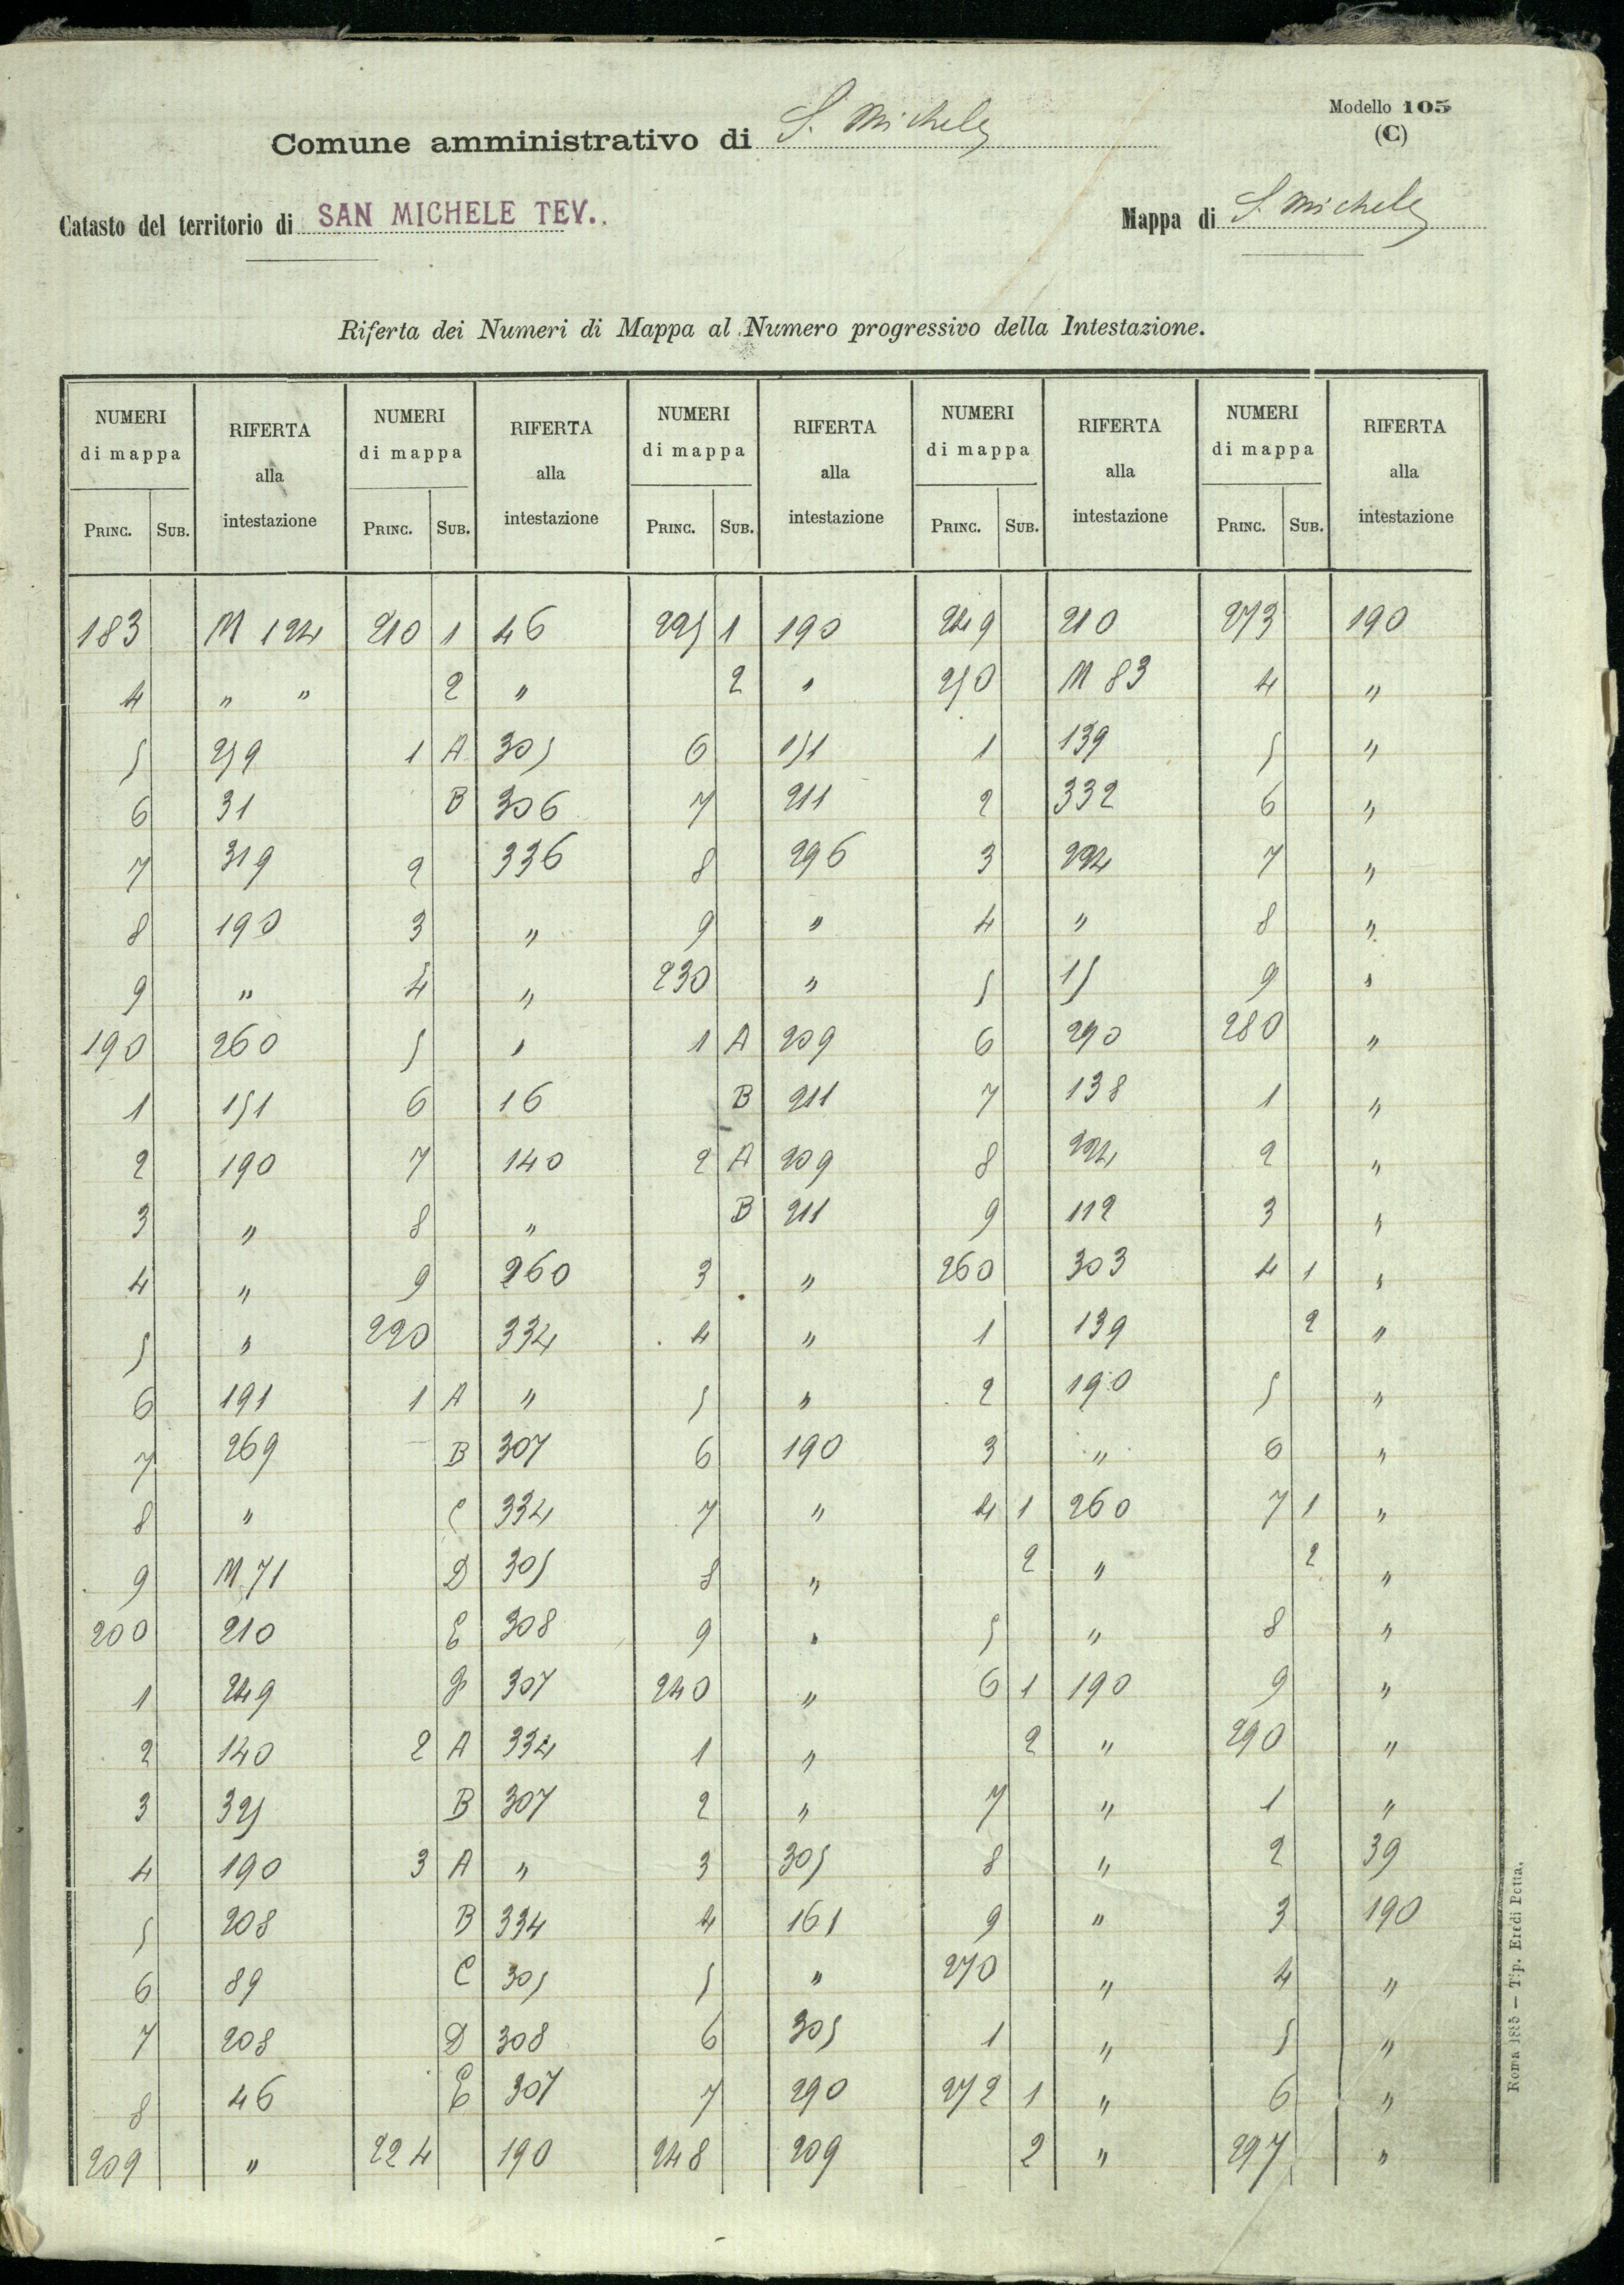 Modello 105
(C)
Comune amministrativo di S. Michele
Catasto del territorio di SAN MICHELE TEV.. Mappa di S. Michele
Riferta dei Numeri di Mappa al Numero progressivo della Intestazione.
NUMERI di mappa RIFERTA alla intestazione NUMERI di mappa RIFERTA alla intestazione NUMERI di mappa RIFERTA alla intestazione NUMERI di mappa RIFERTA alla intestazione NUMERI di mappa RIFERTA alla intestazione
PRINC. SUB. PRINC. SUB. PRINC. SUB. PRINC. SUB. PRINC. SUB.
183 M 124 210 1 46 225 1 190 249 210 273 190
4 " " 2 " 2 " 250 M 83 4 "
5 259 1 A 305 6 151 1 139 5 "
6 31 B 306 7 211 2 332 6 "
7 319 2 336 8 296 3 224 7 "
8 190 3 " 9 " 4 " 8 "
9 " 4 " 230 " 5 15 9 "
190 260 5 " 1 A 209 6 290 280 "
1 151 6 16 B 211 7 138 1 "
2 190 7 140 2 A 209 8 224 2 "
3 " 8 " B 211 9 112 3 "
4 " 9 260 3 " 260 303 4 1 "
5 " 220 334 4 " 1 139 2 "
6 191 1 A " 5 " 2 190 5 "
7 269 B 307 6 190 3 " 6 "
8 " C 334 7 " 4 1 260 7 1 "
9 M 71 D 305 8 " 2 " 2 "
200 210 E 308 9 " 5 " 8 "
1 249 307 240 " 6 1 190 9 "
2 140 2 A 334 1 " 2 " 290 "
3 325 B 307 2 " 7 " 1 "
4 190 3 A " 3 305 8 " 2 39
5 208 B 334 4 161 9 " 3 190
6 89 C 305 5 " 270 " 4 "
7 208 D 308 6 305 1 " 5 "
8 46 E 307 7 290 272 1 " 6 "
209 " 224 190 248 209 2 " 297 "
Roma 1885 — Tip. Eredi Botta.